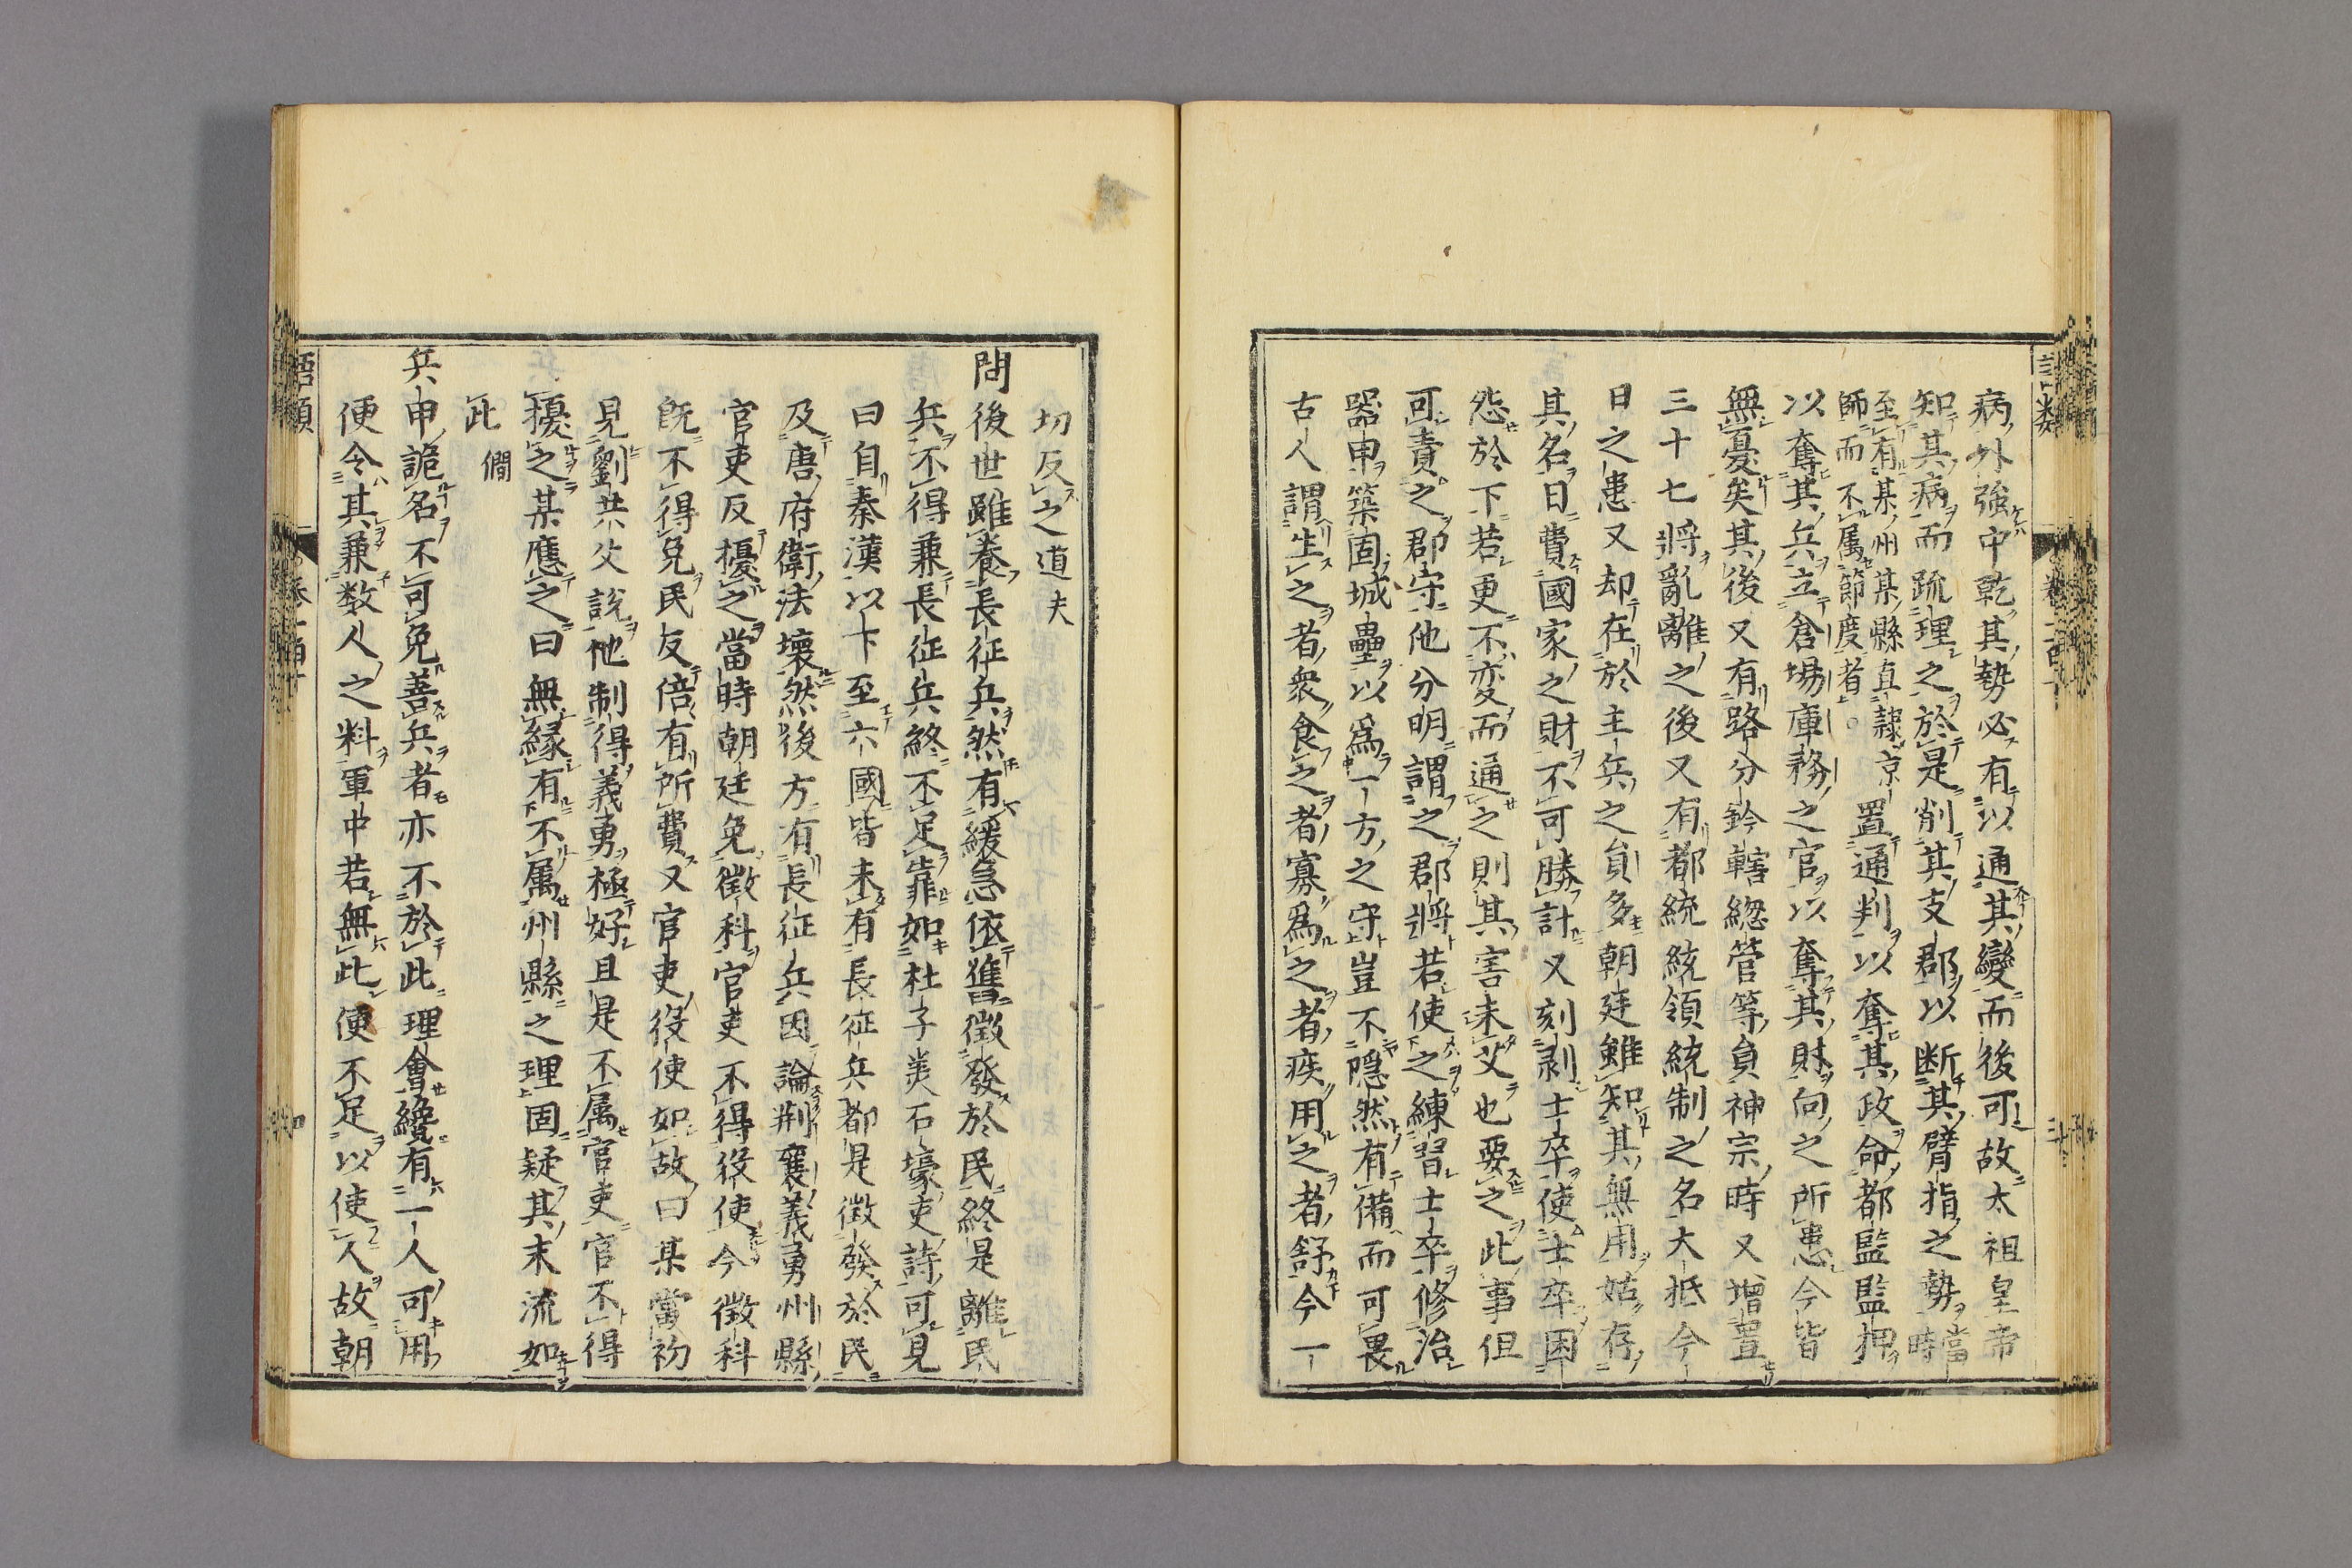 病外強中乾其勢必有以通其變而後可故太祖皇帝
知其病而疏理之於是削其支郡以断其臂指之勢當時
至有某州某縣直隷京
師而不属節度者。置通判以奪其政命都監監押
以奪其兵立倉場庫務之官以奪其財向之所患今皆
無憂矣其後又有路分鈐轄緫管等貟神宗時又増置
三十七將亂離之後又有都統統領統制之名大抵今
日之患又却在於主兵之貟多朝廷雖知其無用姑存
其名日費國家之財不可勝計又刻剥士卒使士卒困
怨於下若更不変而通之則其害未艾也要之此事但
可責之郡守他分明謂之郡將若使之練習士卒修治
器甲築固城壘以爲一方之守豈不隠然有備而可畏
古人謂生之者衆食之者寡爲之者疾用之者舒今一
切反之道夫
問後世雖養長征兵然有緩急依舊徴發於民終是離民
兵不得兼長征兵終不足靠如杜子美石壕吏詩可見
曰自秦漢以下至六國皆未有長征兵都是徴發於民
及唐府衛法壊然後方有長征兵因論荆襄義勇州縣
官吏反擾之當時朝廷免徴科官吏不得役使今徴科
既不得免民反倍有所費又官吏役使如故曰某當初
見劉共父說他制得義勇極好且是不属官吏官不得
擾之某應之曰無縁有不属州縣之理固疑其末流如
此 僩
兵甲詭名不可免善兵者亦不於此理會纔有一人可用
便令其兼数人之料軍中若無此便不足以使人故朝